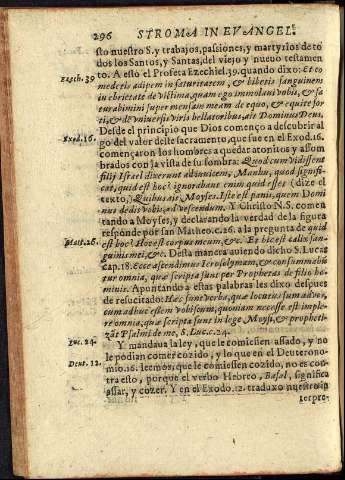 296 STROMA IN EVANGEL.
sto nuestro S. y trabajos, passiones, y martyrios de to
dos los Santos, y Santas, del viejo y nuevo testamen
to. A esto el Profeta Ezechiel. 39. quando dixo: Et co
Ezech. 39
medetis adipem in saturitatem, & bibetis sanguinem
in ebrietate de victima, quam ego immolavi vobis, & sa
turabimini super mensam meam de equo, & equite for
ti, & de vniversis viris bellatoribus, ait Dominus Deus.
Desde el principio que Dios començo a descubrir al
go del valor deste sacramento, que fue en el Exod. 16.
Exod. 16.
començaron los hombres a quedar atonitos y assom
brados con la vista de su sombra: Quod cum vidissent
filij Israel dixerunt adinuicem, Manhu, quod signifi-
cat, quid est hoc? ignorabant enim quid esset (dize el
texto) Quibus ait Moyses. Iste est panis, quem Domi
nus dedit vobis, ad vescendum. Y Christo N.S. comen
tando a Moyses, y declarando la verdad de la figura
responde por san Matheo. c. 26. a la pregunta de quid
Matt. 26.
est hoc? Hoc est corpus meum, &c. Et hic est calix san-
guinis mei, &c. Desta manera auiendo dicho S. Lucas
cap. 18. Ecce ascendimus Ierosolymam, & consummabũ
tur omnia, quæ scripta sunt per Prophetas de filio ho-
minis. Apuntando a estas palabras les dixo despues
de resucitado: Hæc sunt verba, quæ locutus sum ad vos,
cum adhuc essem vobiscum, quoniam necesse est imple-
re omnia, quæ scripta sunt in lege Moysi, & propheti-
zãt Psalmi de me, S. Luc. c. 24.
Luc. 24.
Y mandaua la ley, que le comiessen assado, y no
le podian comer cozido, y lo que en el Deuterono-
Deut. 12.
mio. 16. leemos, que le comiessen cozido, no es con
tra esto, porque el verbo Hebreo, Basal, significa
assar, y cozer. Y en el Exodo. 12. traduxo nuestro in
terpre-